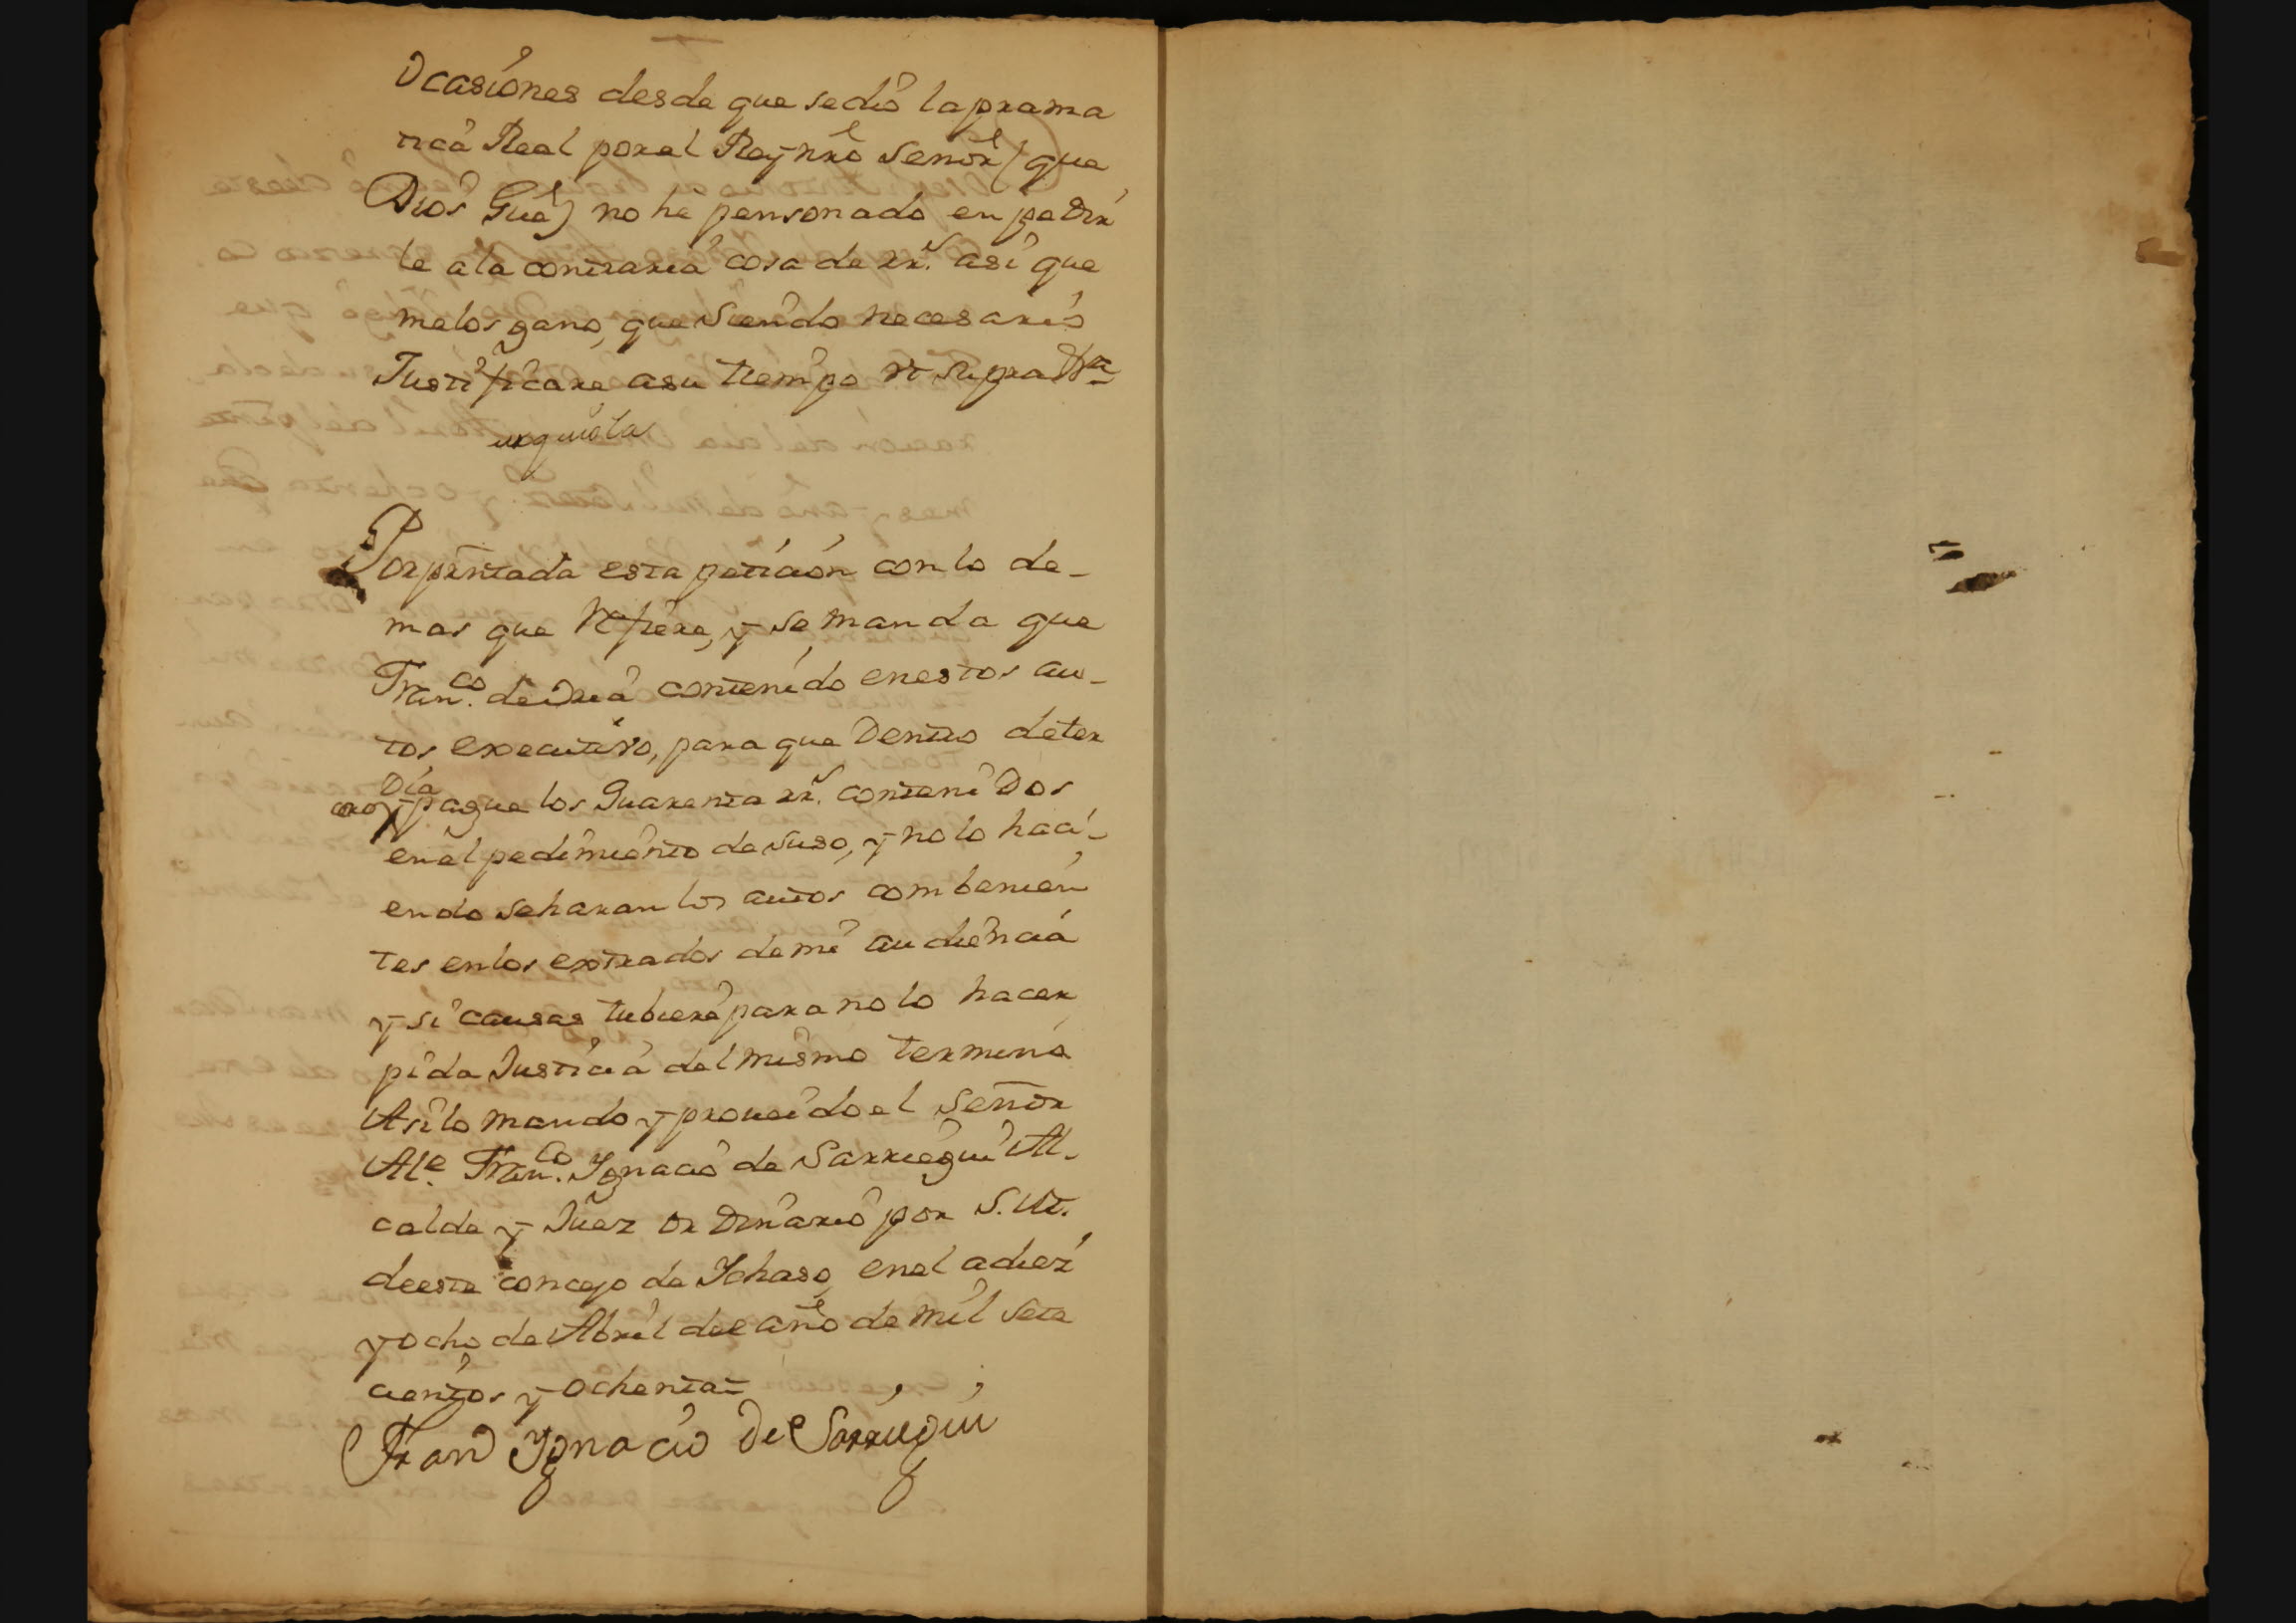 Ocasiones desde que se dio la prama
tica Real por el Rey nrô Señor (que
Dios Gue) no he pensonado en pedir
le a la contraria cosa de rr.s asi que
me los gano, que siendo necesario
Justificare a su tiempo vt supra
urquiola
Por pñtada esta peticion con lo de-
mas que Refiere, y se manda que
Fran.co de Oria contenido en estos au-
tos executivo, para que Dentro de ter
cero Dia pague los Quarenta rr.s conteniDos
en el pedimiento de suso, y no lo haci-
endo se haran los autos combenien
tes en los extrados de mi audiencia
y si causas tubiere para no lo hacer
pida Justicia del mismo termino
Asi lo mando y proueido el Señor
Ale. Fran.co Ygnacio de Sarriegui Al-
calde y Juez orDinario por S. M.
de este concejo de Ichaso, en el a diez
y ocho de Abril del año de mil sete
cientos y ochenta=
Fran.co Ygnacio De Sarriegui